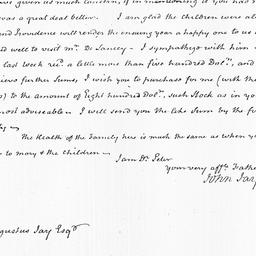 was a great deal below. I am glad the children were al
and Providence will render the ensuing year a happy one to us a
well to visit Mr. De Lancey - I sympathize with him -
last week recd. a little more than five hundred Dolrs., and
receives further Sums, I wish you to purchase for me (with the
to the amount of Eight hundred Dolrs., such Stock as in yo
most adviseable. I will send you the like Sum by the fi
The Health of the Family here is much the same as when y
to Mary & the children -
I am Dr. Peter
your very affte. Father
John Jay
ugustus Jay Esqr.